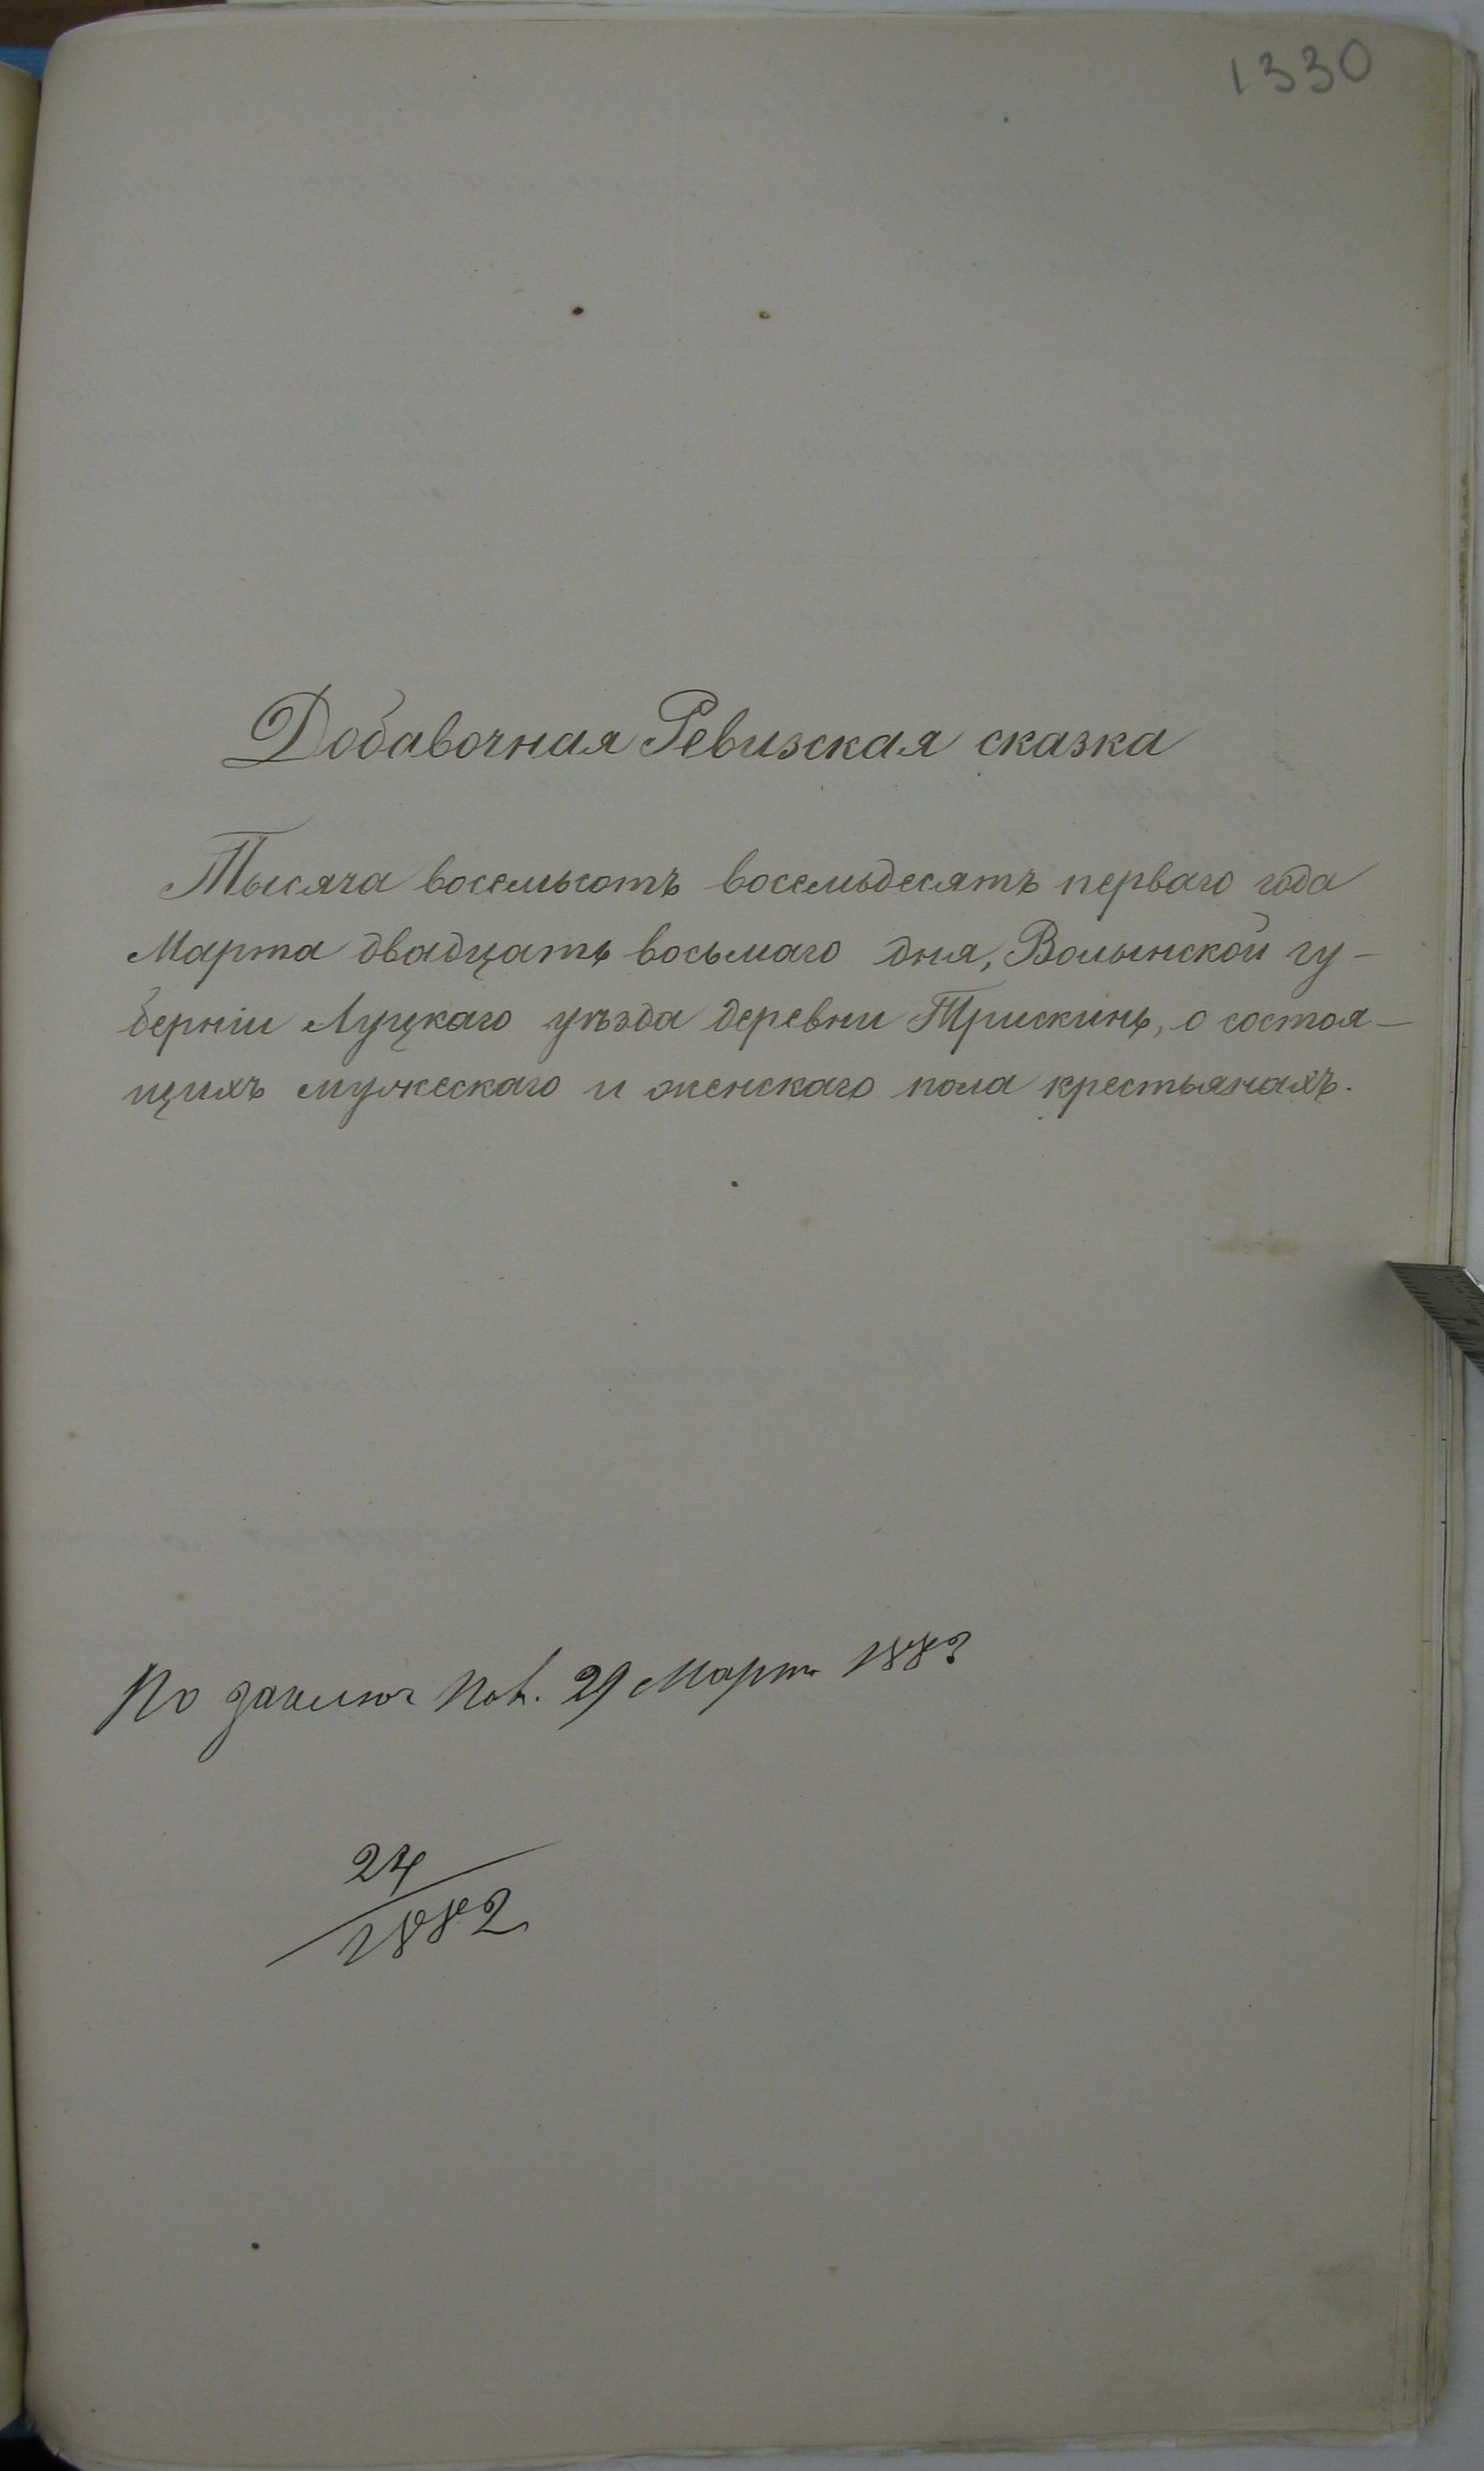 1330
Добавочная Ревизская сказка
Тысяча восемьсотъ восемьдесятъ перваго года
Марта двадцать восьмаго дня, Волынской гу-
берніи Луцкаго уѣзда деревни Трискинь, о состоя-
щихъ мужескаго и женскаго пола крестьянахъ.
По заключ 29 Марта 1883
24
1882